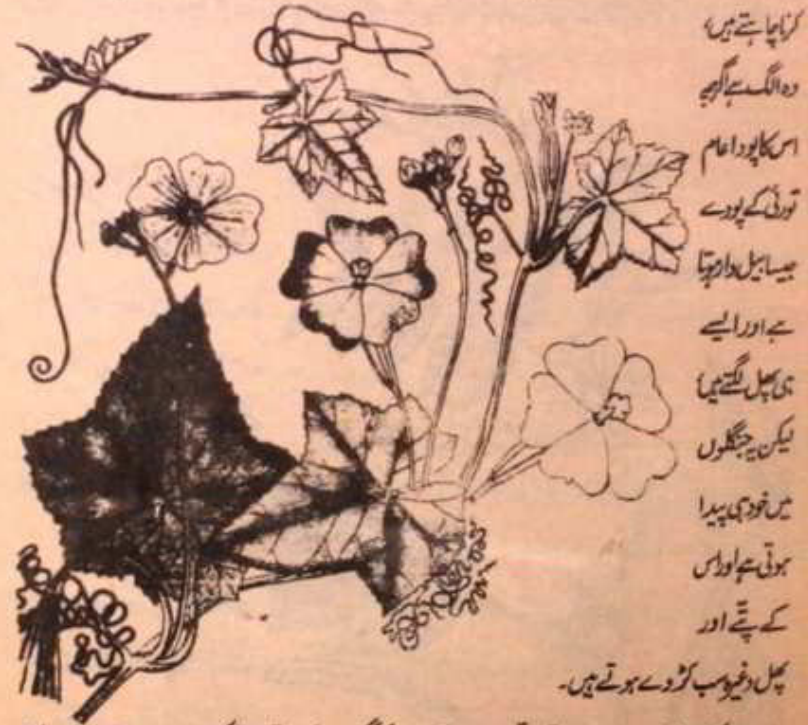 کرنا چاہتے ہیں،
وہ الگ ہے اگرچہ
اس کا پودا عام
تورئی کے پودے
جیسا بیل دار ہوتا
ہے اور ایسے
ہی پھل لگتے ہیں،
لیکن یہ جنگلوں
میں خود ہی پیدا
ہوتی ہے اور اس
کے پتے اور
پھل وغیرہ سب کڑوے ہوتے ہیں۔